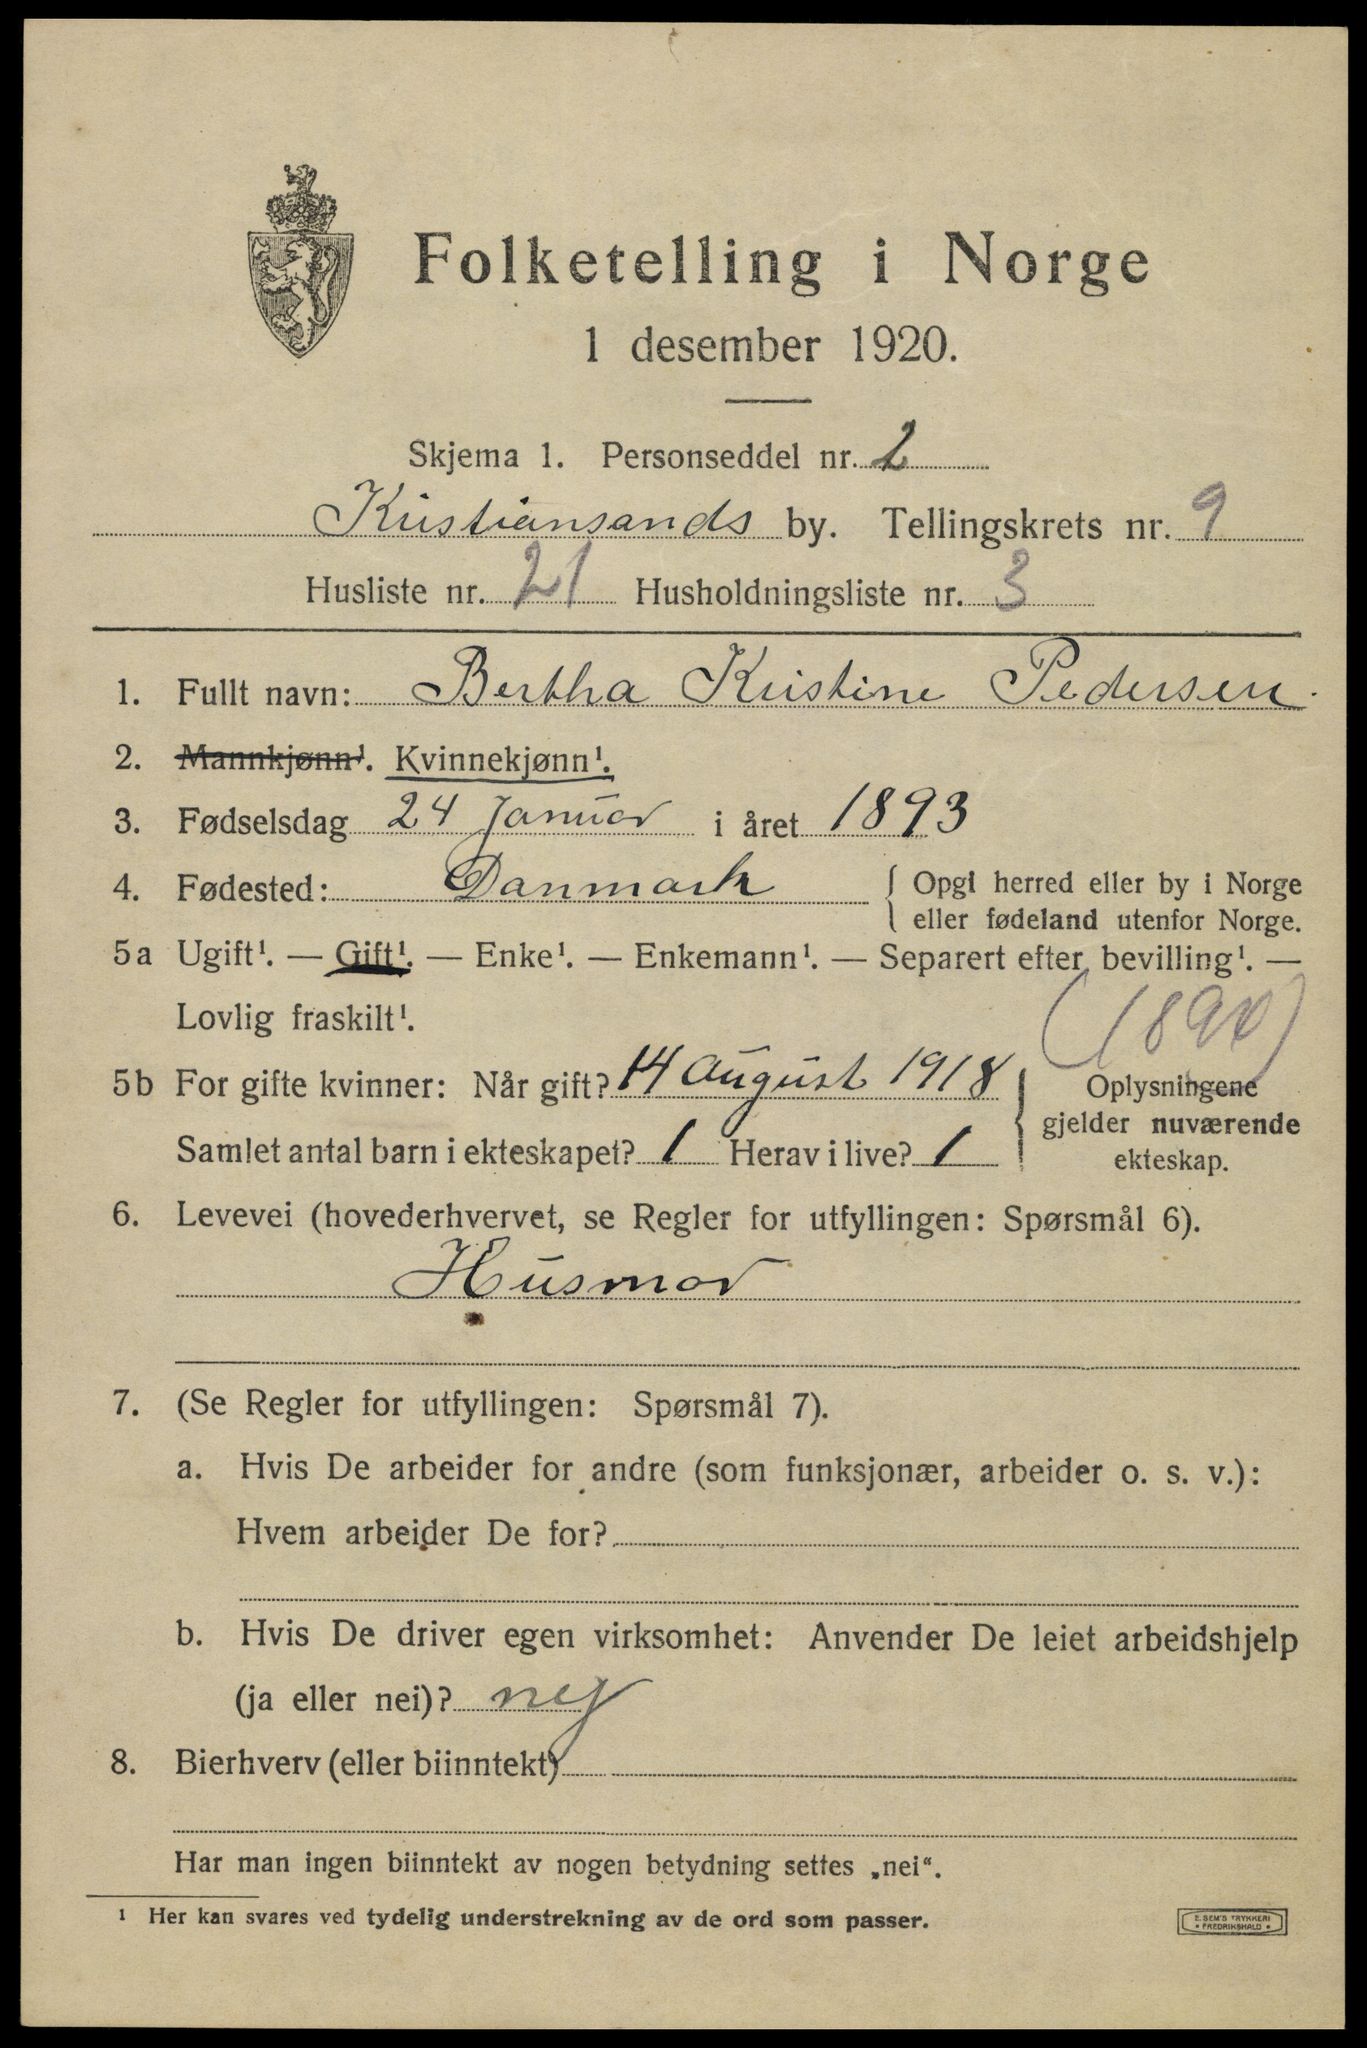 Folketelling i Norge
1 desember 1920.
Skjema 1. Personseddel nr. 2
Kristiansands by. Tellingskrets nr. 9
Husliste nr. 21 Husholdningsliste nr. 3
1. Fullt navn: Bertha Kristine Pedersen.
2. Mannkjønn¹. Kvinnekjønn¹.
3. Fødselsdag 24 Januar i året 1893
4. Fødested: Danmark { Opgi herred eller by i Norge
eller fødeland utenfor Norge.
5a Ugift¹. — Gift¹. — Enke¹. — Enkemann¹. — Separert efter bevilling¹. —
Lovlig fraskilt¹.
5b For gifte kvinner: Når gift? 14 August 1918 } Oplysningene
gjelder nuværende
Samlet antal barn i ekteskapet? 1 Herav i live? 1
ekteskap.
6. Levevei (hovederhvervet, se Regler for utfyllingen: Spørsmål 6).
Husmor
7. (Se Regler for utfyllingen: Spørsmål 7).
a. Hvis De arbeider for andre (som funksjonær, arbeider o. s. v.):
Hvem arbeider De for?
b. Hvis De driver egen virksomhet: Anvender De leiet arbeidshjelp
(ja eller nei)? nej
8. Bierhverv (eller biinntekt)
Har man ingen biinntekt av nogen betydning settes „nei“.
¹ Her kan svares ved tydelig understrekning av de ord som passer.
E. SEM'S TRYKKERI
• FREDRIKSHALD •